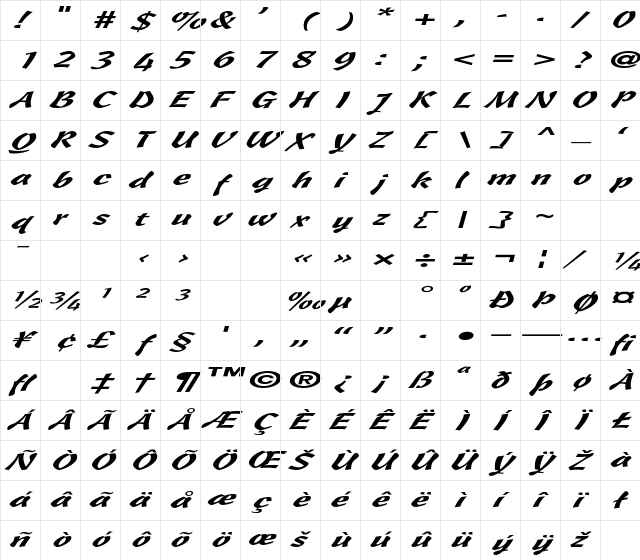 ! " # $ % & ' ( ) * + , - . / 0
1 2 3 4 5 6 7 8 9 : ; < = > ? @
A B C D E F G H I J K L M N O P
Q R S T U V W X Y Z [ \ ] ^ _ ‘
a b c d e f g h i j k l m n o p
q r s t u v w x y z { | } ~
¯ ‹ › « » × ÷ ± ¬ ¦ ⁄ ¼
½ ¾ ¹ ² ³ ‰ µ ° º Ð Þ Ø ¤
¥ ¢ £ ƒ § ' ‚ „ “ ” · • – — … fi
fl ‡ † ¶ ™ © ® ¿ ¡ ß ª ð þ ø À
Á Â Ã Ä Å Æ Ç È É Ê Ë Ì Í Î Ï Ł
Ñ Ò Ó Ô Õ Ö Œ Š Ù Ú Û Ü Ý Ÿ Ž à
á â ã ä å æ ç è é ê ë ì í î ï ł
ñ ò ó ô õ ö œ š ù ú û ü ý ÿ ž